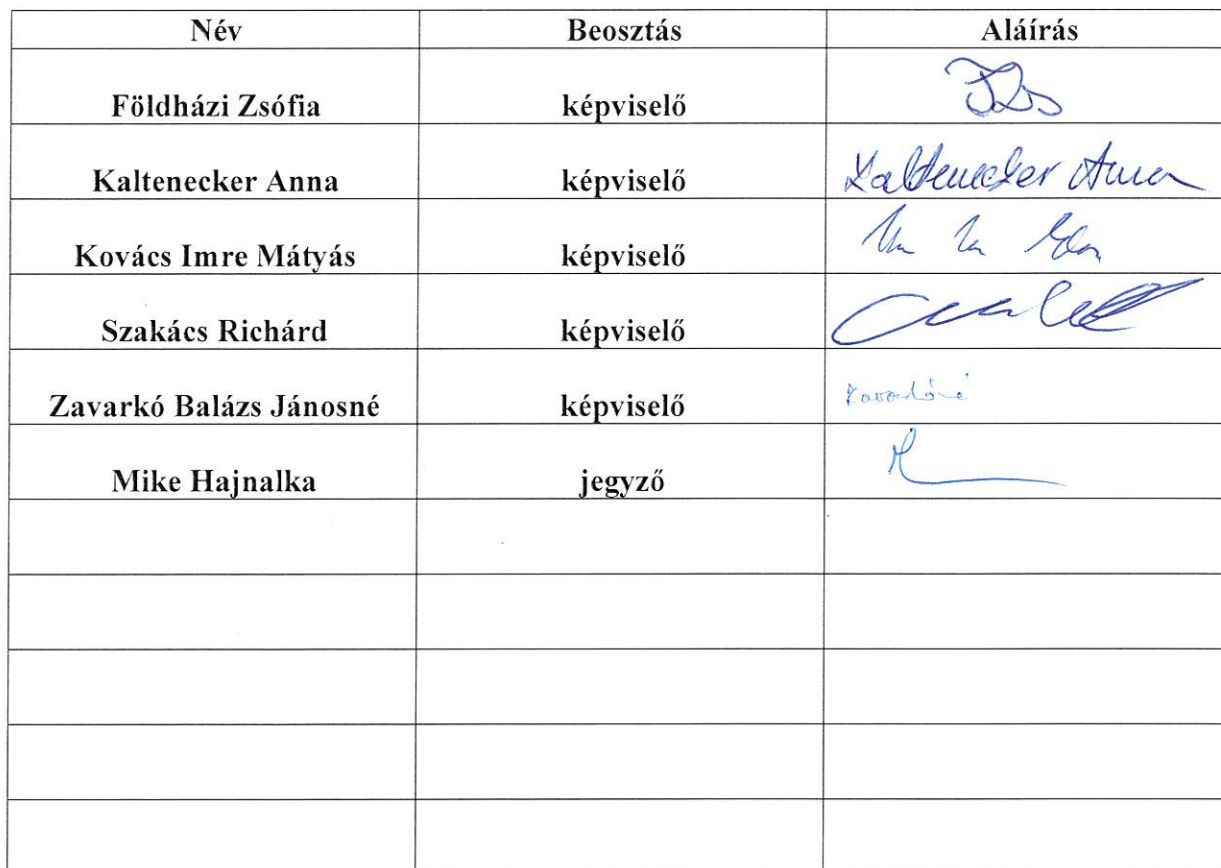 Név Beosztás Aláírás
Földházi Zsófia képviselő
Kaltenecker Anna képviselő Kaltenecker Anna
Kovács Imre Mátyás képviselő
Szakács Richárd képviselő
Zavarkó Balázs Jánosné képviselő
Mike Hajnalka jegyző